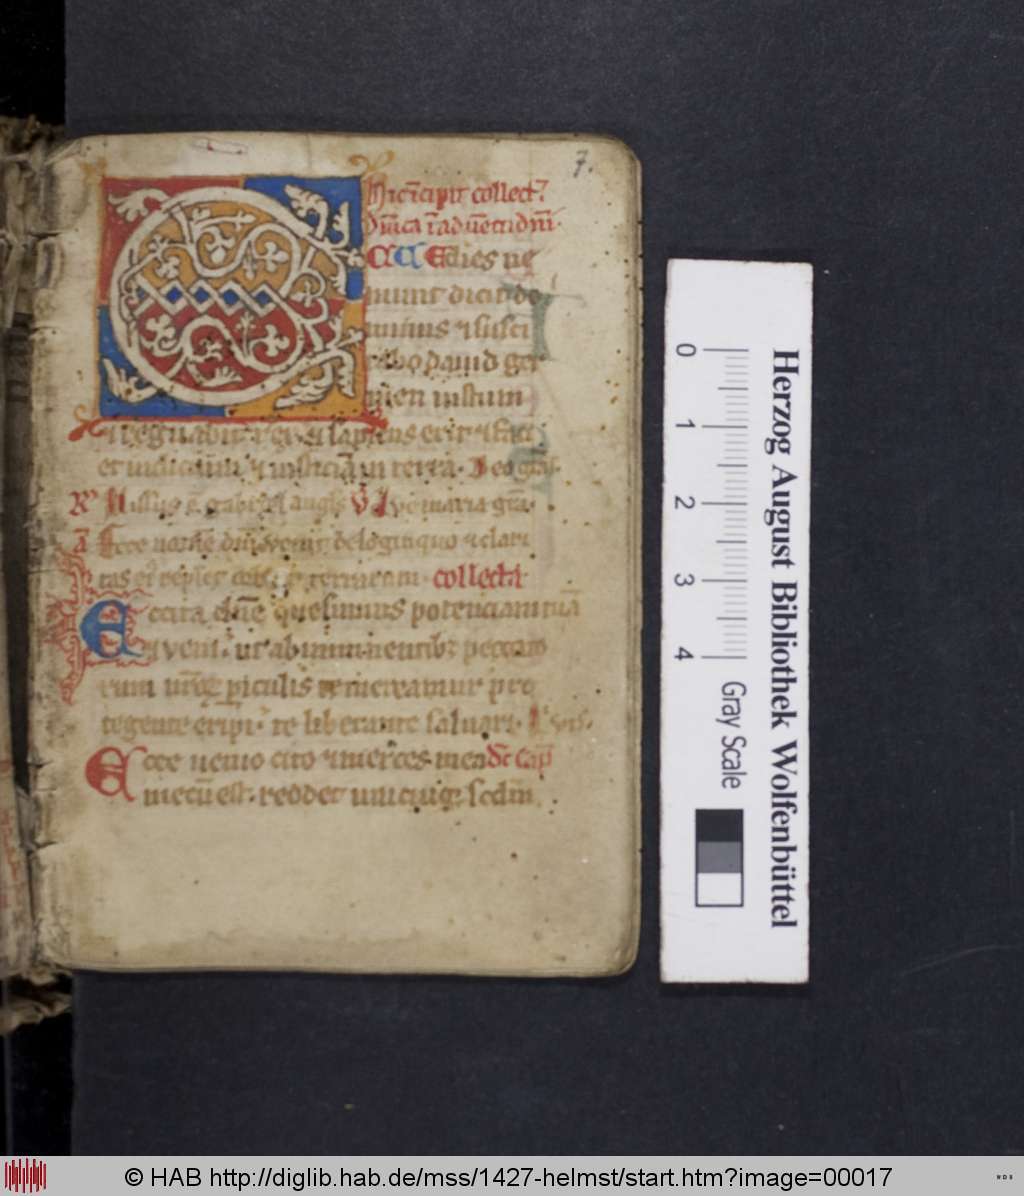 7.
Hic īcipit collect̄
Dn̄ica ī aduētu dn̄i.
ECCE dies ue
niunt dicit do
minus ⁊ susci
tabo dauid ger
men iustum
⁊ regnabit rex ⁊ sapiens erit ⁊ faci
et iudicium ⁊ iusticiā in terra. Deo grās.
R̄ Missus ē gabriel angls V̄ Aue maria grā.
Ecce nomē dn̄i uenit de longinquo ⁊ clari
tas ei replet orbē terrarum. collecta
Excita dn̄e quesumus potenciam tuā
⁊ ueni. ut ab imminentibꝫ peccato
rum nr̄oꝝ piculis te mereamur pro
tegente eripi. te liberante saluari.
Ecce uenio cito ⁊ merces mea Sc̄ Cap̄
mecū est. reddere unicuiqꝫ scdm
0 1 2 3 4
Gray Scale
Herzog August Bibliothek Wolfenbüttel
© HAB http://diglib.hab.de/mss/1427-helmst/start.htm?image=00017